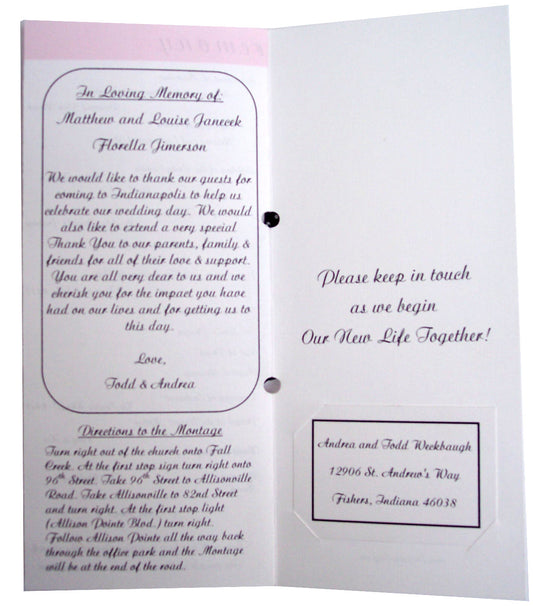 In Loving Memory of:
Matthew and Louise Janecek
Florella Jimerson
We would like to thank our guests for
coming to Indianapolis to help us
celebrate our wedding day. We would
also like to extend a very special
Thank You to our parents, family &
friends for all of their love & support.
You are all very dear to us and we
cherish you for the impact you have
had on our lives and for getting us to
this day.
Love,
Todd & Andrea
Directions to the Montage
Turn right out of the church onto Fall
Creek. At the first stop sign turn right onto
96th Street. Take 96th Street to Allisonville
Road. Take Allisonville to 82nd Street
and turn right. At the first stop light
(Allison Pointe Blvd.) turn right.
Follow Allison Pointe all the way back
through the office park and the Montage
will be at the end of the road.
Please keep in touch
as we begin
Our New Life Together!
Andrea and Todd Weekbaugh
12906 St. Andrew's Way
Fishers, Indiana 46038